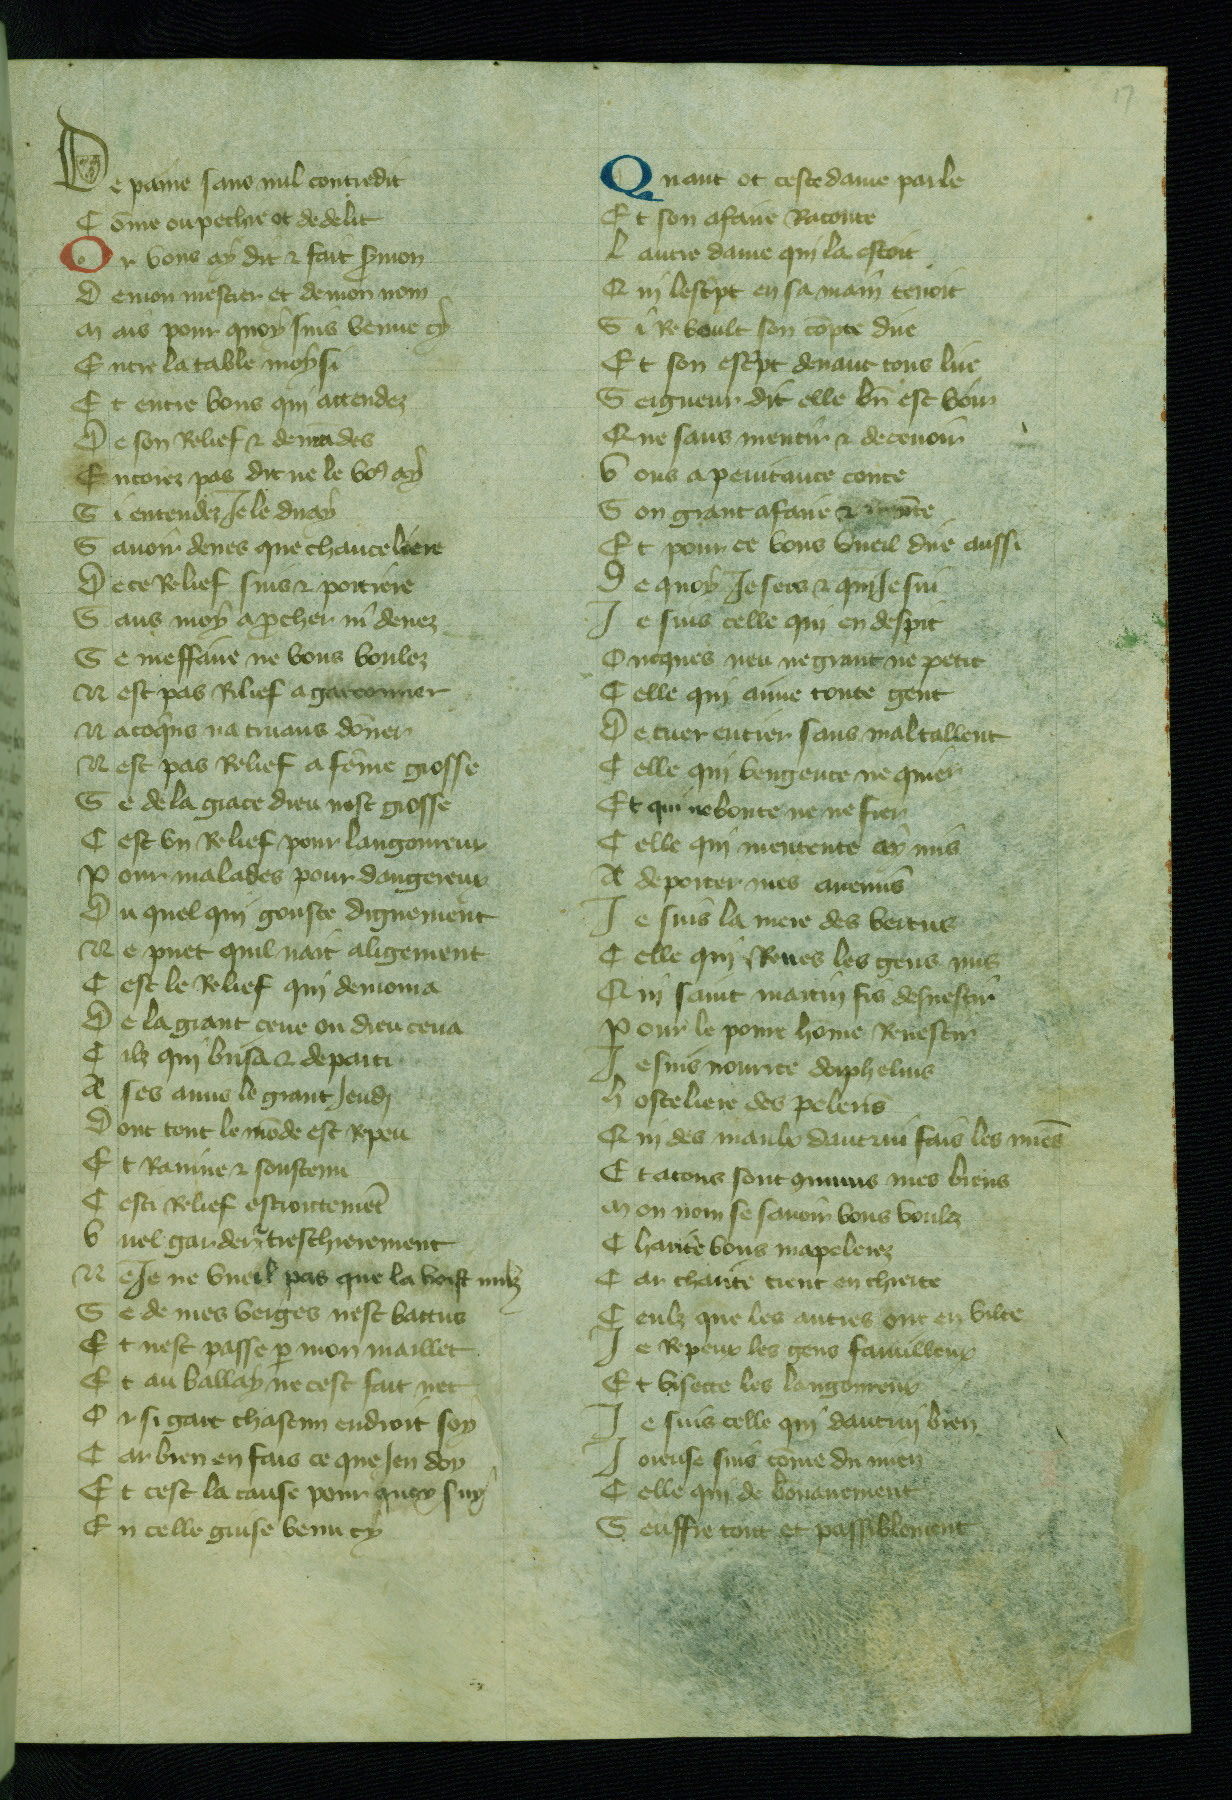 17
De paine sans nul contredit
Cōme ou pechie ot de delit
Or vous ay dit & fait s̄mon
De mon mestier et de mon nom
Mais pour quoy suis venue cy
Entre la table moysi
Et entre vous qui attendez
De son Relief & demādes
Encorez pas dit ne le vo9 ay
Si entendez Je le diray
Savoir deues que chanceliere
De ce Relief suis & portiere
Sans moy ap̄cher ni deuez
Se meffaire ne vous voulez
Nest pas Relief a garconner
Na coq̄ns na truans dōner
Nest pas Relief a fēme grosse
Se de la grace dieu nest grosse
Cest vn Relief pour langoureux
Pour malades pour dangereux
Du quel qui gouste dignement
Ne puet quil nait aligement
Cest le Relief qui demoura
De la grant cene ou dieu cena
Cilz qui brisa & departi
A ses amis le grant Jeudi
Dont tout le mōde est Repeu
Et Ranime & soustenu
Cesti Relief estroictemēt
Vuel garder & treschierement
Ne Je ne vueil pas que la voist nulz
Se de mes verges nest battus
Et nest passe p̄ mon maillet
Et au ballay ne cest fait net
Or si gart chascun endroit soy
Car bien en fais ce que Jen doy
Et cest la cause pour quoy suy
En celle guise venu cy
Quant ot ceste dame parle
Et son afaire Raconte
Lautre dame qui la estoit
Qui lesc̄pt en sa main tenoit
Si Re voult son cōpte dire
Et son esc̄pt deuant tous lire
Seigneur dit elle bn̄ est voir
Que sans mentir & decevoir
Vous a penitance conte
Son grant afaire &
Et pour ce vous vueil dire aussi
De quoy Je sers & qui Je sui
Je suis celle qui en despit
Oncques neu ne grant ne petit
Celle qui aime toute gent
De cuer entier sans maltallent
Celle qui vengence ne quier
Et qui ne bonte ne ne fier
Celle qui mentente ay mis
A deporter mes anemis
Je suis la mere des vertus
Celle qui Reues les gens nus
Qui saint martin fis desuestir
Pour le poure hōme Reuestir
Je suis nourrice dorphelins
Hosteliere des pelerīs
Qui des maulx dautrui fais les miēs
Et a tous sont 9muns mes biens
Mon nom se savoir vous voulez
Charite vous mapelerez
Car charite tient en chierte
Ceulz que les autres ont en vilte
Je Repeux les gens familleux
Et visecte les langoureux
Je suis celle qui dautrui bien
Joieuse suis cōme du mien
Celle qui de bonairement
Seuffre tout et passiblement